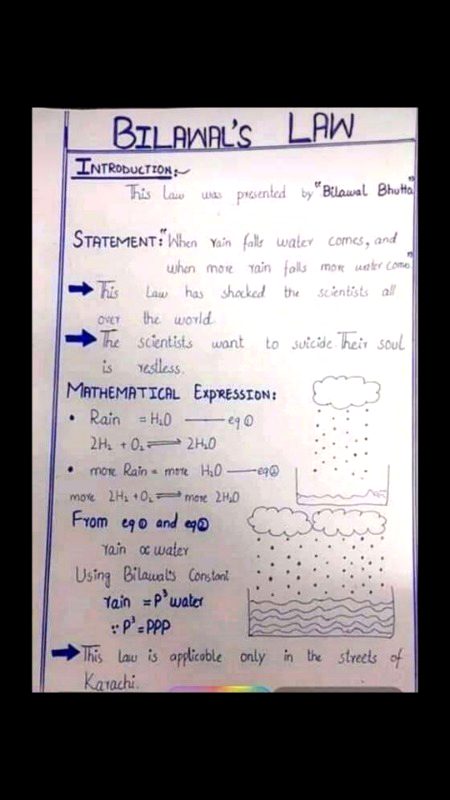 BILAWAL'S LAW
INTRODUCTION:~
This Law was presented by "Bilawal Bhutta"
STATEMENT: "When rain falls water comes, and
when more rain falls more water come"
➡ This Law has shocked the scientists all
over the world.
➡ The scientists want to suicide Their soul
is restless.
MATHEMATICAL EXPRESSION:
• Rain = H₂O —— eq ①
2H₂ + O₂ ⇌ 2H₂O
• more Rain = more H₂O —— eq ②
more 2H₂ + O₂ ⇌ more 2H₂O
From eq ① and eq ②
rain ∝ water
Using Bilawal's Constant
rain = P³ water
∵ P³ = PPP
➡ This law is applicable only in the streets of
Karachi.